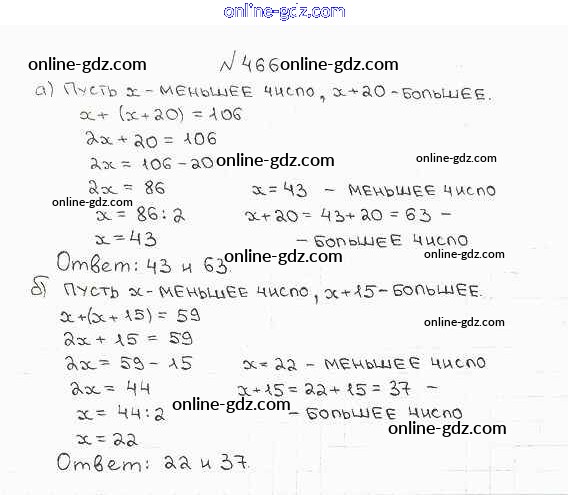 online-gdz.com
№ 466 online-gdz.com
online-gdz.com
а) Пусть x - меньшее число, x+20 - большее.
x + (x+20) = 106
2x + 20 = 106
2x = 106 - 20 online-gdz.com online-gdz.com
2x = 86 x = 43 - меньшее число
online-gdz.com
x = 86 : 2 x+20 = 43+20 = 63 -
x = 43 - большее число
online-gdz.com online-gdz.com
Ответ: 43 и 63.
б) Пусть x - меньшее число, x+15 - большее.
x+(x+15) = 59
online-gdz.com
2x + 15 = 59
2x = 59 - 15 x = 22 - меньшее число
2x = 44 x+15 = 22+15 = 37 -
online-gdz.com
x = 44 : 2 - большее число
online-gdz.com
x = 22
Ответ: 22 и 37.
online-gdz.com